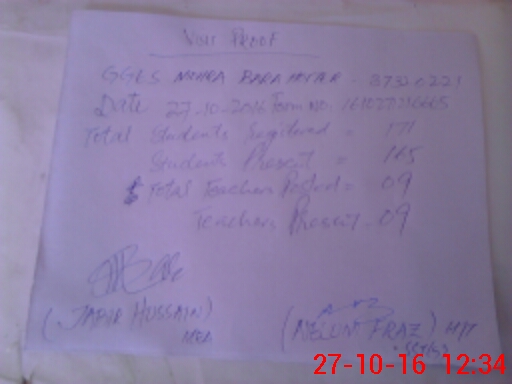 VISIT PROOF
GGES MEHRA BARA - 37320221
Date 27.10.2016 Form No: 161077216665
Total Students Registered = 171
Students Present = 165
Total Teachers Posted = 09
Teachers Present - 09
(JABIR HUSSAIN) (NEELUM FIRAZ)
MEA
27-10-16 12:34